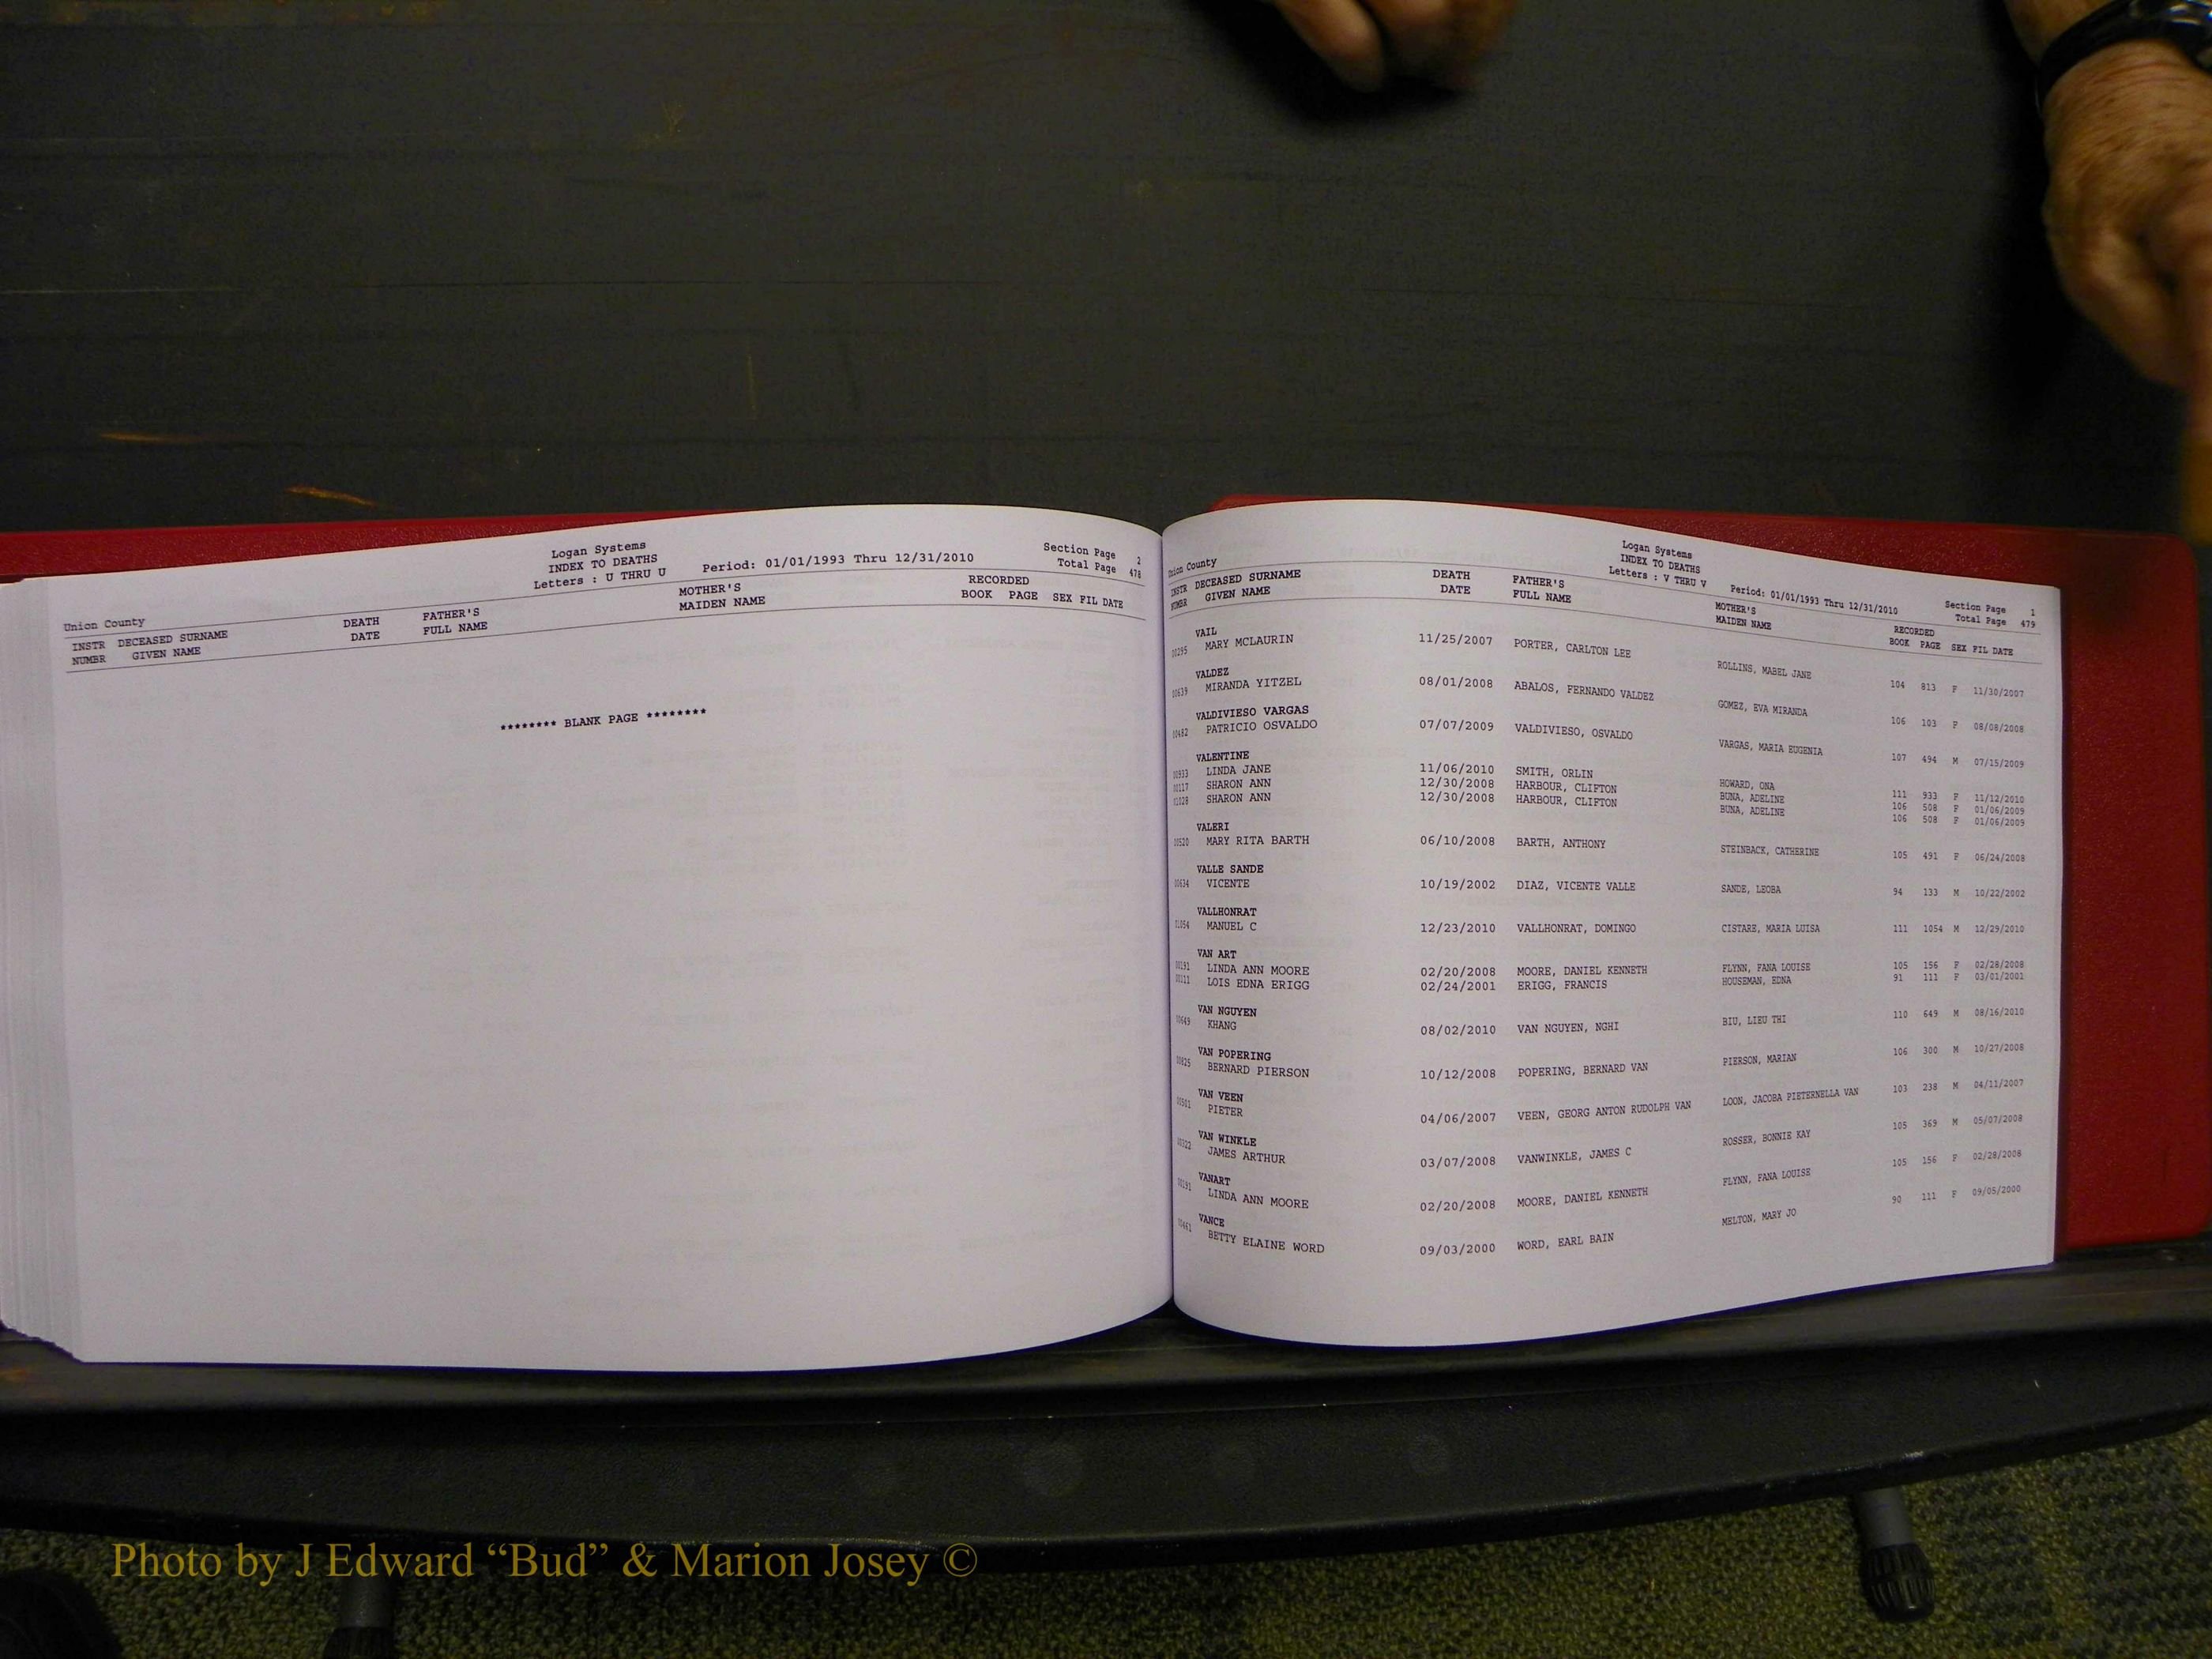 Logan Systems
INDEX TO DEATHS
Letters : U THRU U Period: 01/01/1993 Thru 12/31/2010
Section Page 2
Total Page 478
Union County
INSTR DECEASED SURNAME DEATH FATHER'S MOTHER'S RECORDED
NUMBR GIVEN NAME DATE FULL NAME MAIDEN NAME BOOK PAGE SEX FIL DATE
******** BLANK PAGE ********
Logan Systems
INDEX TO DEATHS
Letters : V THRU V Period: 01/01/1993 Thru 12/31/2010
Section Page 1
Total Page 479
Union County
INSTR DECEASED SURNAME DEATH FATHER'S MOTHER'S RECORDED
NUMBR GIVEN NAME DATE FULL NAME MAIDEN NAME BOOK PAGE SEX FIL DATE
VAIL
00295 MARY MCLAURIN 11/25/2007 PORTER, CARLTON LEE ROLLINS, MABEL JANE 104 813 F 11/30/2007
VALDEZ
00639 MIRANDA YITZEL 08/01/2008 ABALOS, FERNANDO VALDEZ GOMEZ, EVA MIRANDA 106 103 F 08/08/2008
VALDIVIESO VARGAS
00482 PATRICIO OSVALDO 07/07/2009 VALDIVIESO, OSVALDO VARGAS, MARIA EUGENIA 107 494 M 07/15/2009
VALENTINE
00933 LINDA JANE 11/06/2010 SMITH, ORLIN HOWARD, ONA 111 933 F 11/12/2010
00117 SHARON ANN 12/30/2008 HARBOUR, CLIFTON BUNA, ADELINE 106 508 F 01/06/2009
01028 SHARON ANN 12/30/2008 HARBOUR, CLIFTON BUNA, ADELINE 106 508 F 01/06/2009
VALERI
00520 MARY RITA BARTH 06/10/2008 BARTH, ANTHONY STEINBACK, CATHERINE 105 491 F 06/24/2008
VALLE SANDE
00634 VICENTE 10/19/2002 DIAZ, VICENTE VALLE SANDE, LEOBA 94 133 M 10/22/2002
VALLHONRAT
01054 MANUEL C 12/23/2010 VALLHONRAT, DOMINGO CISTARE, MARIA LUISA 111 1054 M 12/29/2010
VAN ART
00191 LINDA ANN MOORE 02/20/2008 MOORE, DANIEL KENNETH FLYNN, FANA LOUISE 105 156 F 02/28/2008
00111 LOIS EDNA ERIGG 02/24/2001 ERIGG, FRANCIS HOUSEMAN, EDNA 91 111 F 03/01/2001
VAN NGUYEN
00649 KHANG 08/02/2010 VAN NGUYEN, NGHI BIU, LIEU THI 110 649 M 08/16/2010
VAN POPERING
00825 BERNARD PIERSON 10/12/2008 POPERING, BERNARD VAN PIERSON, MARIAN 106 300 M 10/27/2008
VAN VEEN
00501 PIETER 04/06/2007 VEEN, GEORG ANTON RUDOLPH VAN LOON, JACOBA PIETERNELLA VAN 103 238 M 04/11/2007
VAN WINKLE
00322 JAMES ARTHUR 03/07/2008 VANWINKLE, JAMES C ROSSER, BONNIE KAY 105 369 M 05/07/2008
VANART
00191 LINDA ANN MOORE 02/20/2008 MOORE, DANIEL KENNETH FLYNN, FANA LOUISE 105 156 F 02/28/2008
VANCE
00461 BETTY ELAINE WORD 09/03/2000 WORD, EARL BAIN MELTON, MARY JO 90 111 F 09/05/2000
Photo by J Edward “Bud” & Marion Josey ©